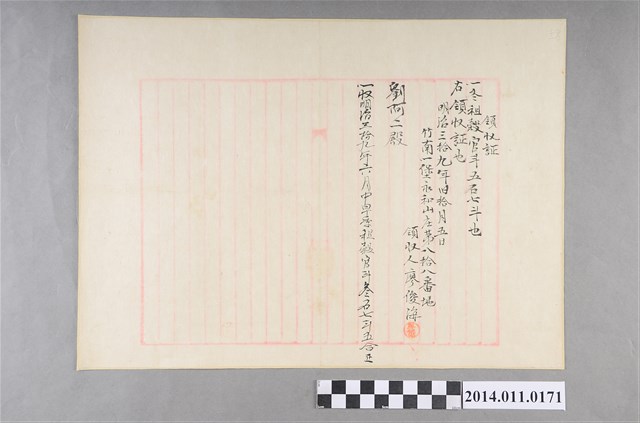 領收証
一冬租穀官斗五石七斗也
右領收証也
明治三拾九年旧拾月五日
竹南一堡永和山庄第八拾八番地
領收人廖俊海
劉阿二殿
一收明治三拾九年六月中早季租穀官斗叁石七斗五合正
2014.011.0171